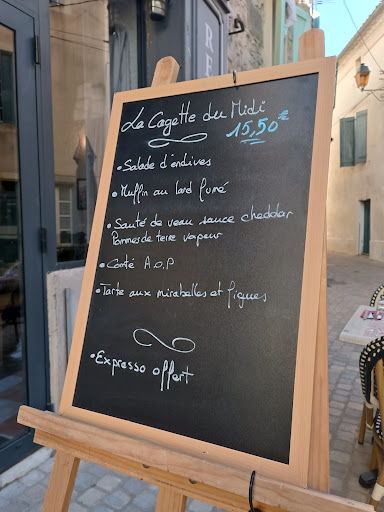 La Cagette du Midi
15,50€
• Salade d'endives
• Muffin au lard fumé
• Sauté de veau sauce cheddar
Pommes de terre vapeur
• Comté A.O.P
• Tarte aux mirabelles et figues
• Expresso offert
RE